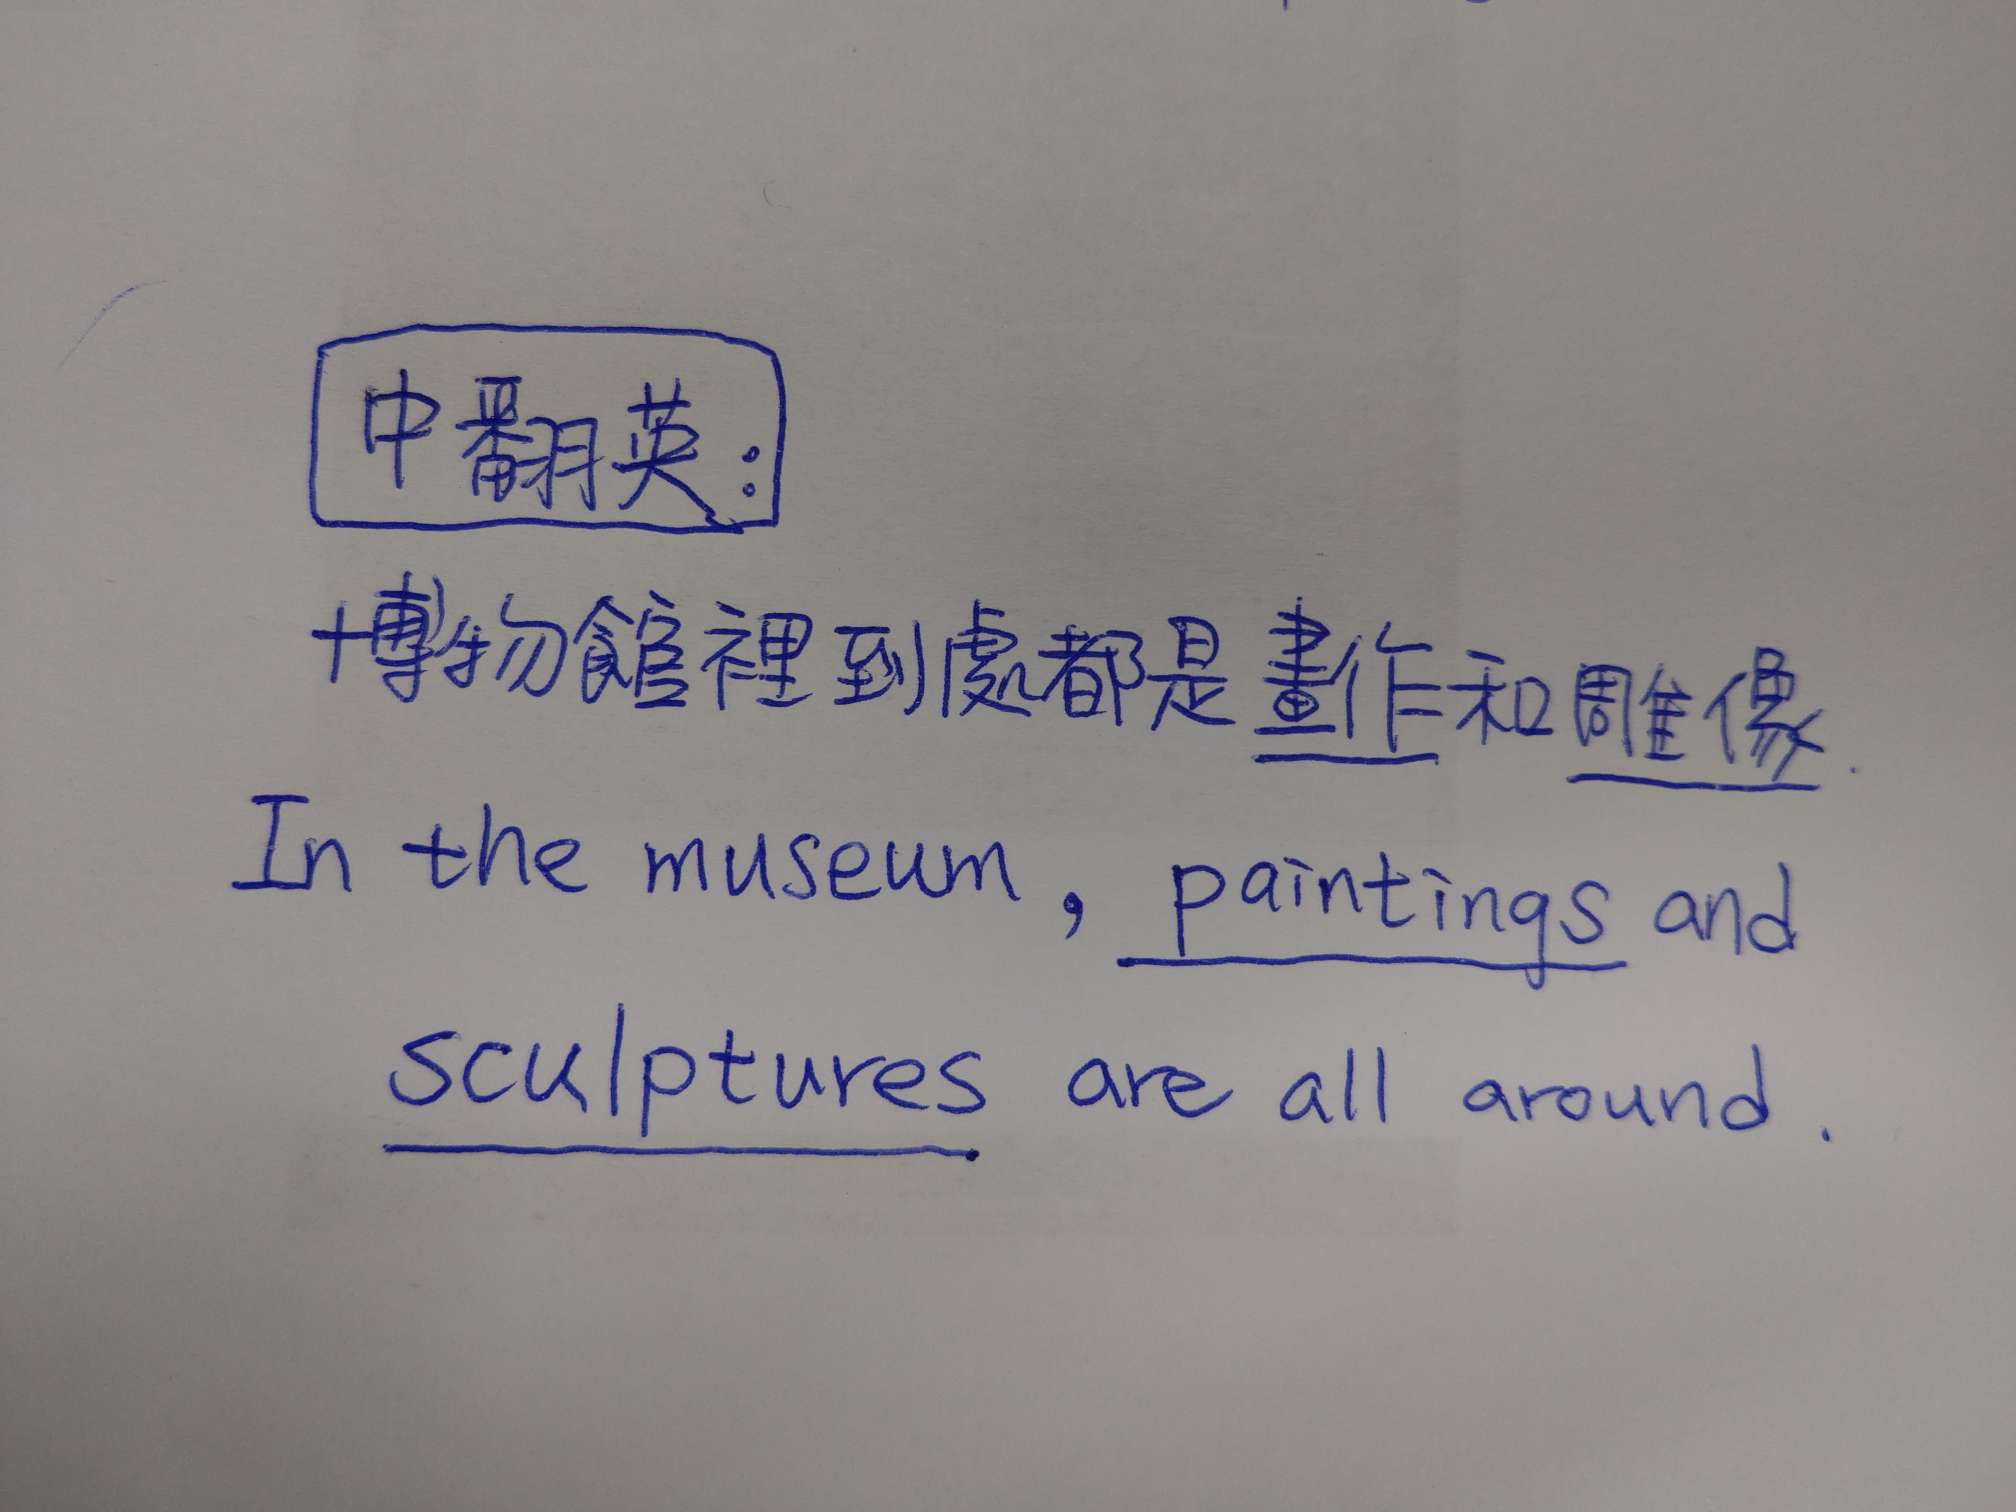 中翻英:
博物館裡到處都是畫作和雕像.
In the museum, paintings and
sculptures are all around.